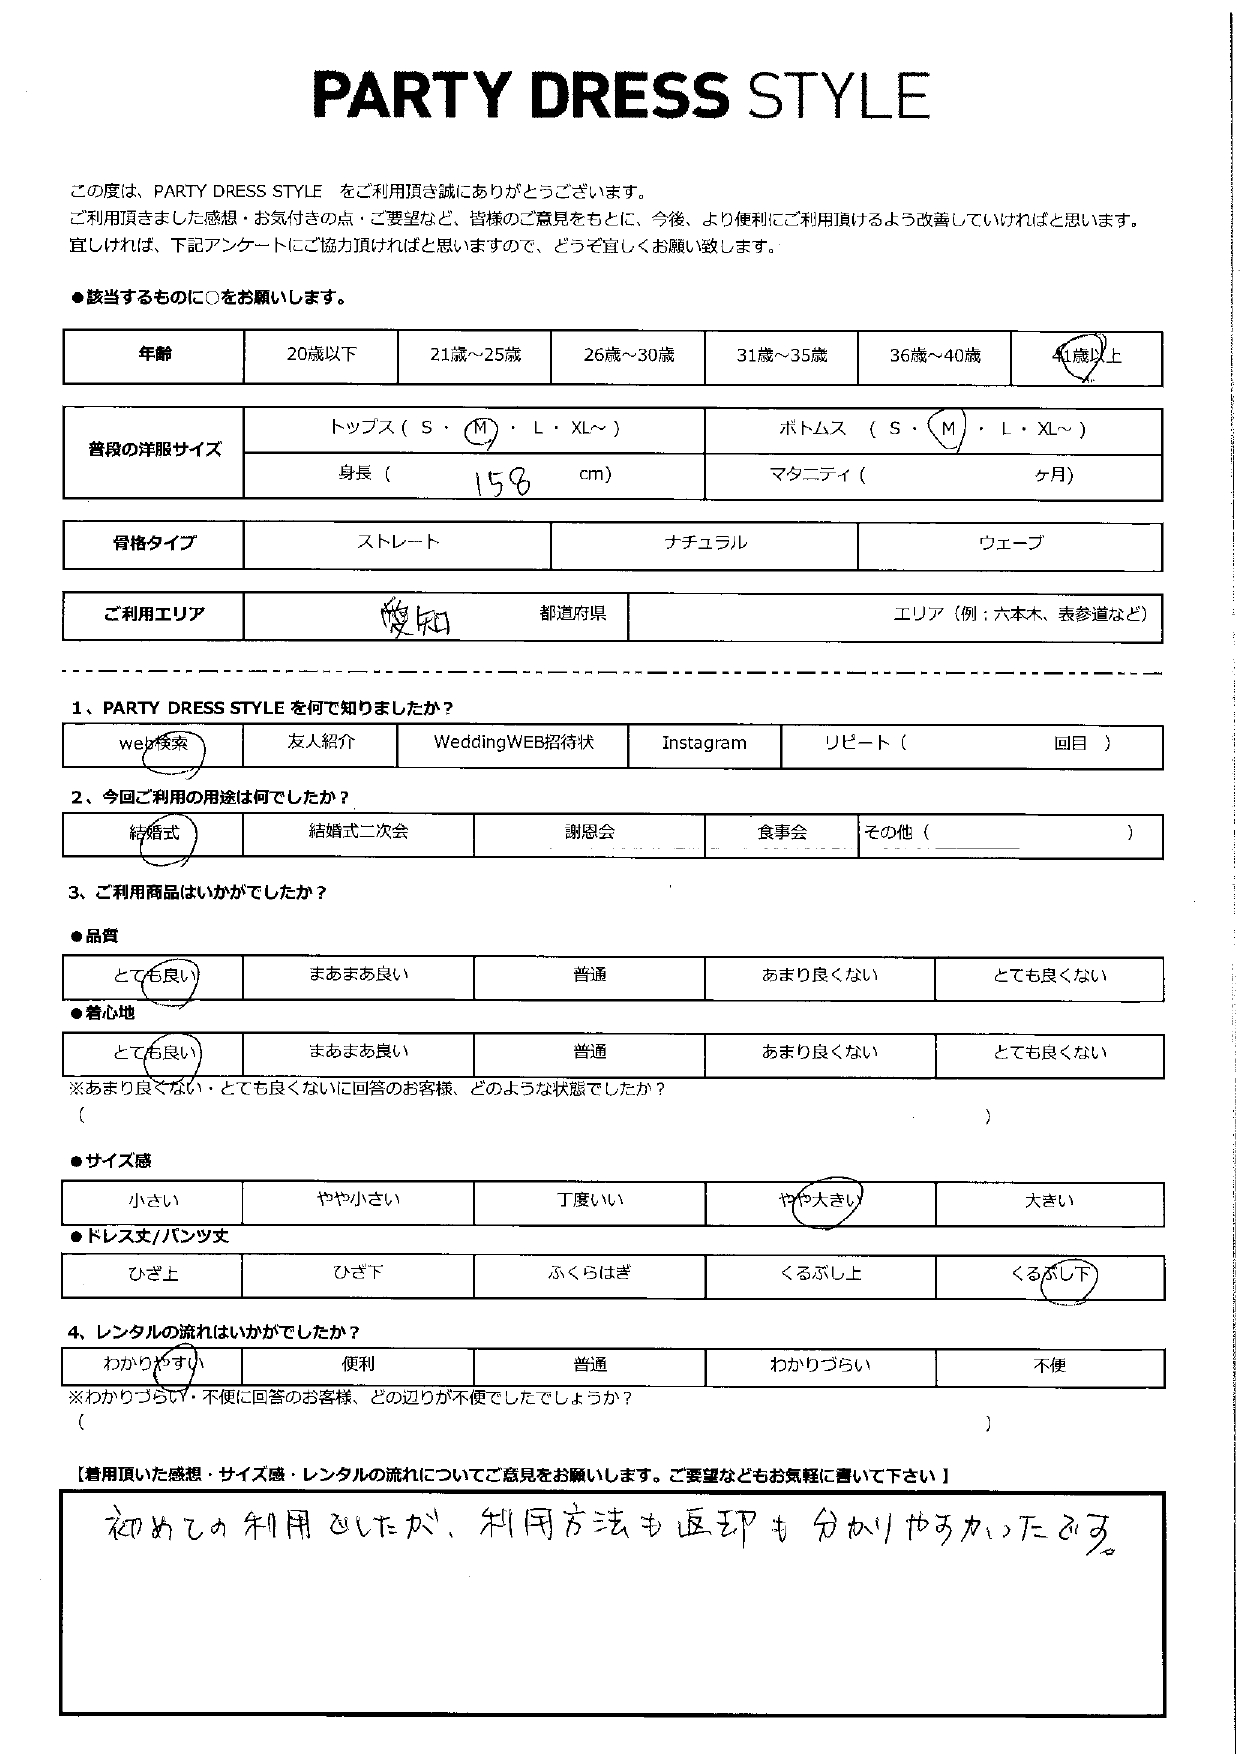 PARTY DRESS STYLE
この度は、PARTY DRESS STYLE　をご利用頂き誠にありがとうございます。
ご利用頂きました感想・お気付きの点・ご要望など、皆様のご意見をもとに、今後、より便利にご利用頂けるよう改善していければと思います。
宜しければ、下記アンケートにご協力頂ければと思いますので、どうぞ宜しくお願い致します。
●該当するものに○をお願いします。
年齢 20歳以下 21歳～25歳 26歳～30歳 31歳～35歳 36歳～40歳 41歳以上
普段の洋服サイズ
トップス ( S ・ M ・ L ・ XL～ ) ボトムス ( S ・ M ・ L ・ XL～ )
身長 ( 158 cm) マタニティ ( ヶ月)
骨格タイプ ストレート ナチュラル ウェーブ
ご利用エリア 愛知 都道府県 エリア（例；六本木、表参道など）
1、PARTY DRESS STYLE を何で知りましたか？
web検索 友人紹介 WeddingWEB招待状 Instagram リピート ( 回目 )
2、今回ご利用の用途は何でしたか？
結婚式 結婚式二次会 謝恩会 食事会 その他 ( )
3、ご利用商品はいかがでしたか？
●品質
とても良い まあまあ良い 普通 あまり良くない とても良くない
●着心地
とても良い まあまあ良い 普通 あまり良くない とても良くない
※あまり良くない・とても良くないに回答のお客様、どのような状態でしたか？
( )
●サイズ感
小さい やや小さい 丁度いい やや大きい 大きい
●ドレス丈/パンツ丈
ひざ上 ひざ下 ふくらはぎ くるぶし上 くるぶし下
4、レンタルの流れはいかがでしたか？
わかりやすい 便利 普通 わかりづらい 不便
※わかりづらい・不便に回答のお客様、どの辺りが不便でしたでしょうか？
( )
【着用頂いた感想・サイズ感・レンタルの流れについてご意見をお願いします。ご要望などもお気軽に書いて下さい】
初めての利用でしたが、利用方法も返却も分かりやすかったです。